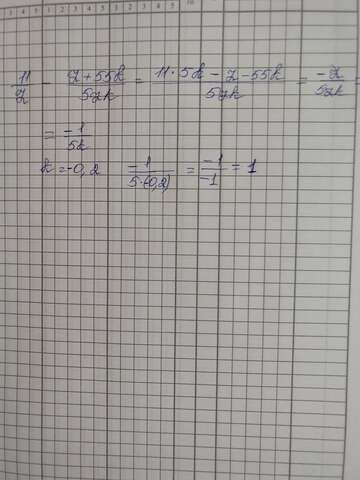 11/z - z+55k/5zk = 11·5k-z-55k/5zk = -z/5zk
= -1/5k
k=-0,2 -1/5·(-0,2) = -1/-1 = 1